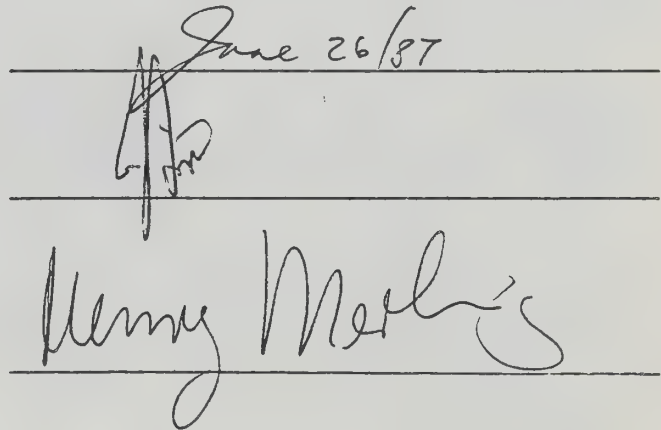 June 26/87
Henry Merling